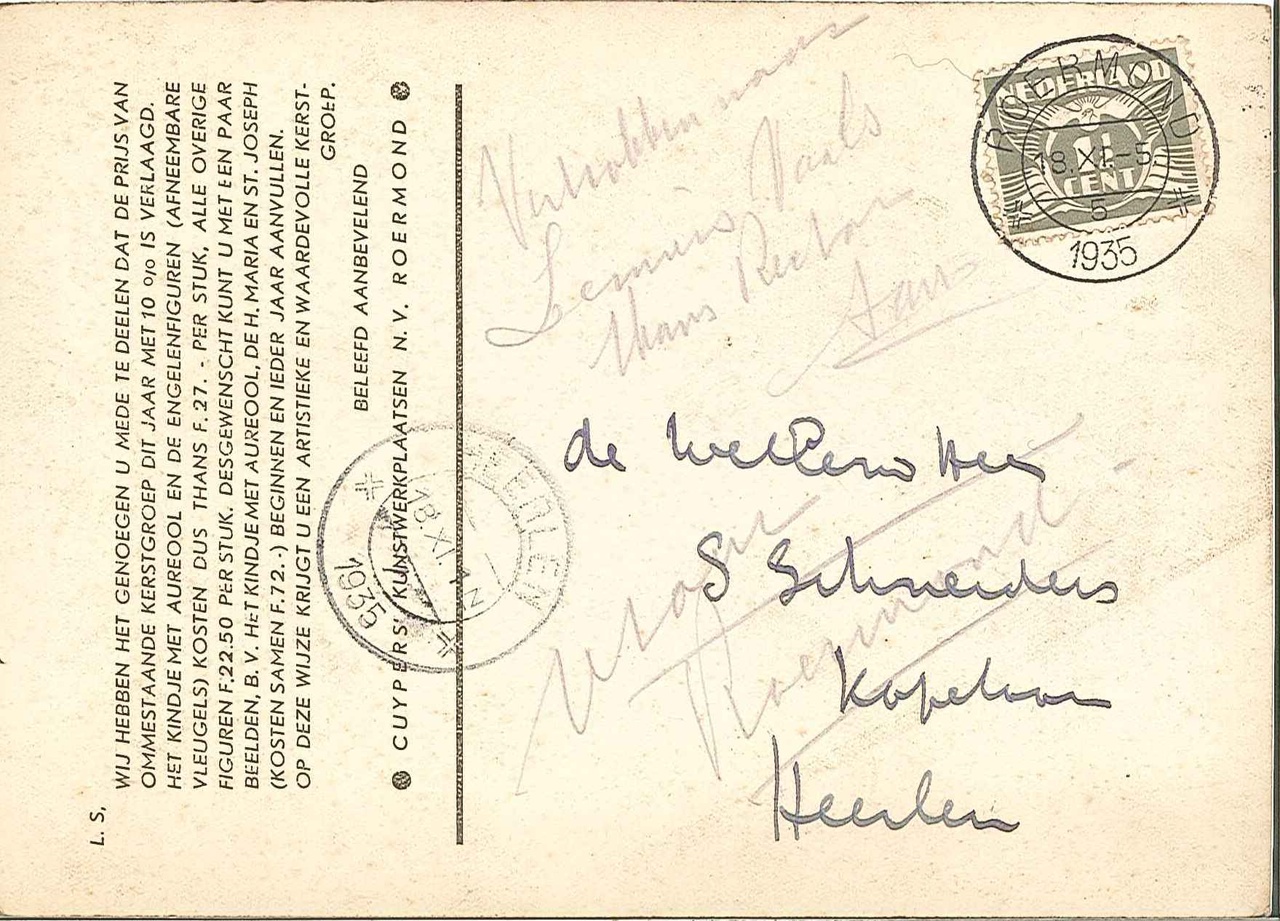 L. S,
WIJ HEBBEN HET GENOEGEN U MEDE TE DEELEN DAT DE PRIJS VAN
OMMESTAANDE KERSTGROEP DIT JAAR MET 10 o/o IS VERLAAGD.
HET KINDJE MET AUREOOL EN DE ENGELENFIGUREN (AFNEEMBARE
VLEUGELS) KOSTEN DUS THANS F. 27. - PER STUK, ALLE OVERIGE
FIGUREN F.22.50 PER STUK. DESGEWENSCHT KUNT U MET EEN PAAR
BEELDEN, B. V. HET KINDJE MET AUREOOL, DE H. MARIA EN ST. JOSEPH
(KOSTEN SAMEN F. 72. -) BEGINNEN EN IEDER JAAR AANVULLEN.
OP DEZE WIJZE KRIJGT U EEN ARTISTIEKE EN WAARDEVOLLE KERST-
GROEP.
BELEEFD AANBEVELEND
CUYPERS' KUNSTWERKPLAATSEN N. V. ROERMOND
NEDERLAND
1½
CENT
ROERMOND
18.XI.-5
5
1935
HEERLEN
18.XI.
1935
Vertrokken naar
Lemiers Vaals
thans Rector
aldaar
de WelEerw Heer
S Schneiders
Kapelaan
Heerlen
Roermond